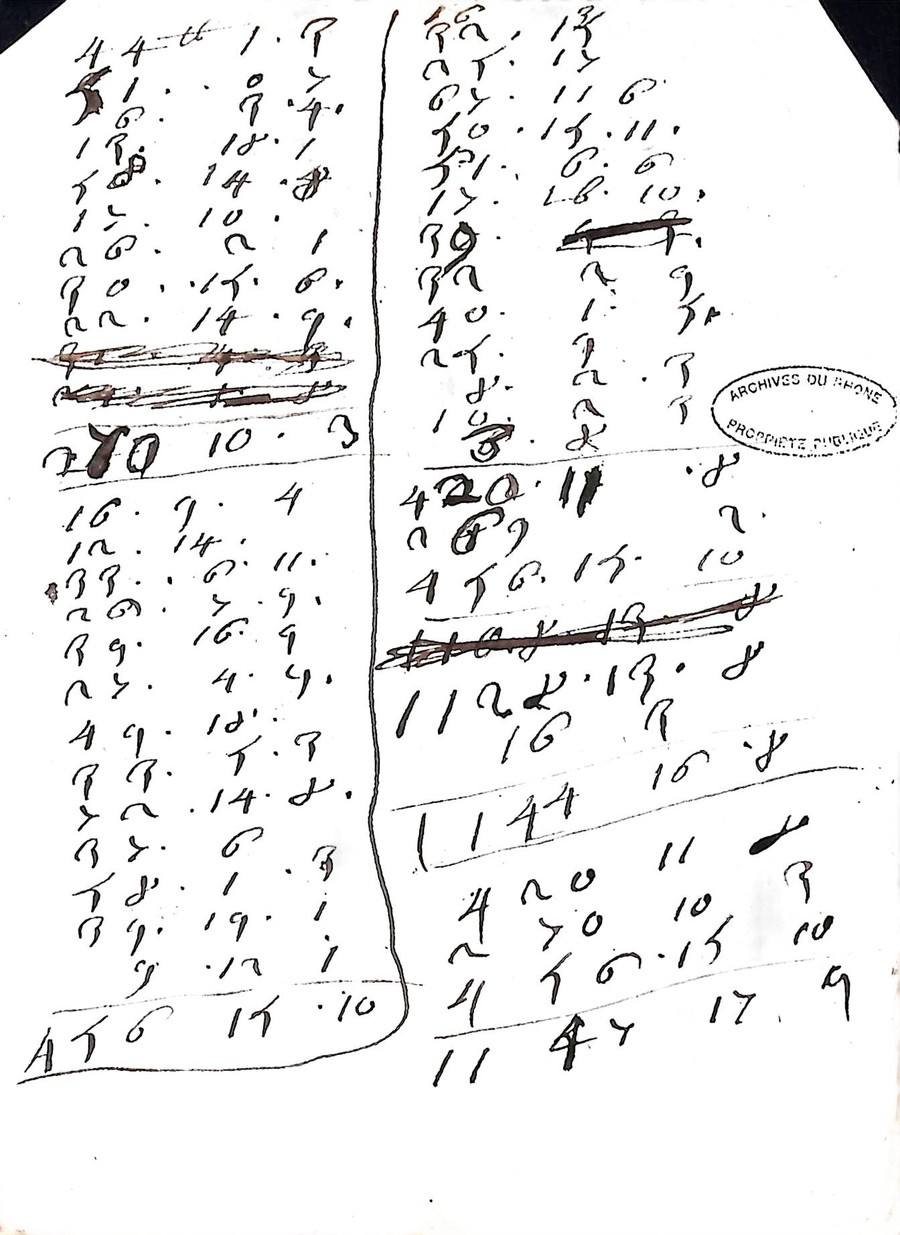 44 ₶ 1. 3
51. . 0 7
6. 3. 4.
13. 18. 1
58. 14. 8
17. 10.
26. 2 1
30. 15. 6.
22. 14. 9.
270 10. 3
16. 9. 4
12. 14.
33. 6. 11.
26. 7. 9.
39. 16. 9
27. 4. 9.
49. 18.
33. 5. 3
72. 14. 8.
37. 6
58. 1. 3
39. 19. 1
9. 12 1
456 15. 10
32. 13
25. 17
67. 11 6
50. 15. 11.
51. 6. 6
17. 16. 10.
30
32 2 9
40. 1. 5.
25. 9
8. 2. 3
10. 2 3
8. 8
420. 11. 8
269 2.
456. 15. 10
1108 13 8
1128. 13. 8
16 3
1144 16. 8
420 11 8
270 10 3
456. 15 10
1147 17. 9
ARCHIVES DU RHONE
PROPRIETE PUBLIQUE